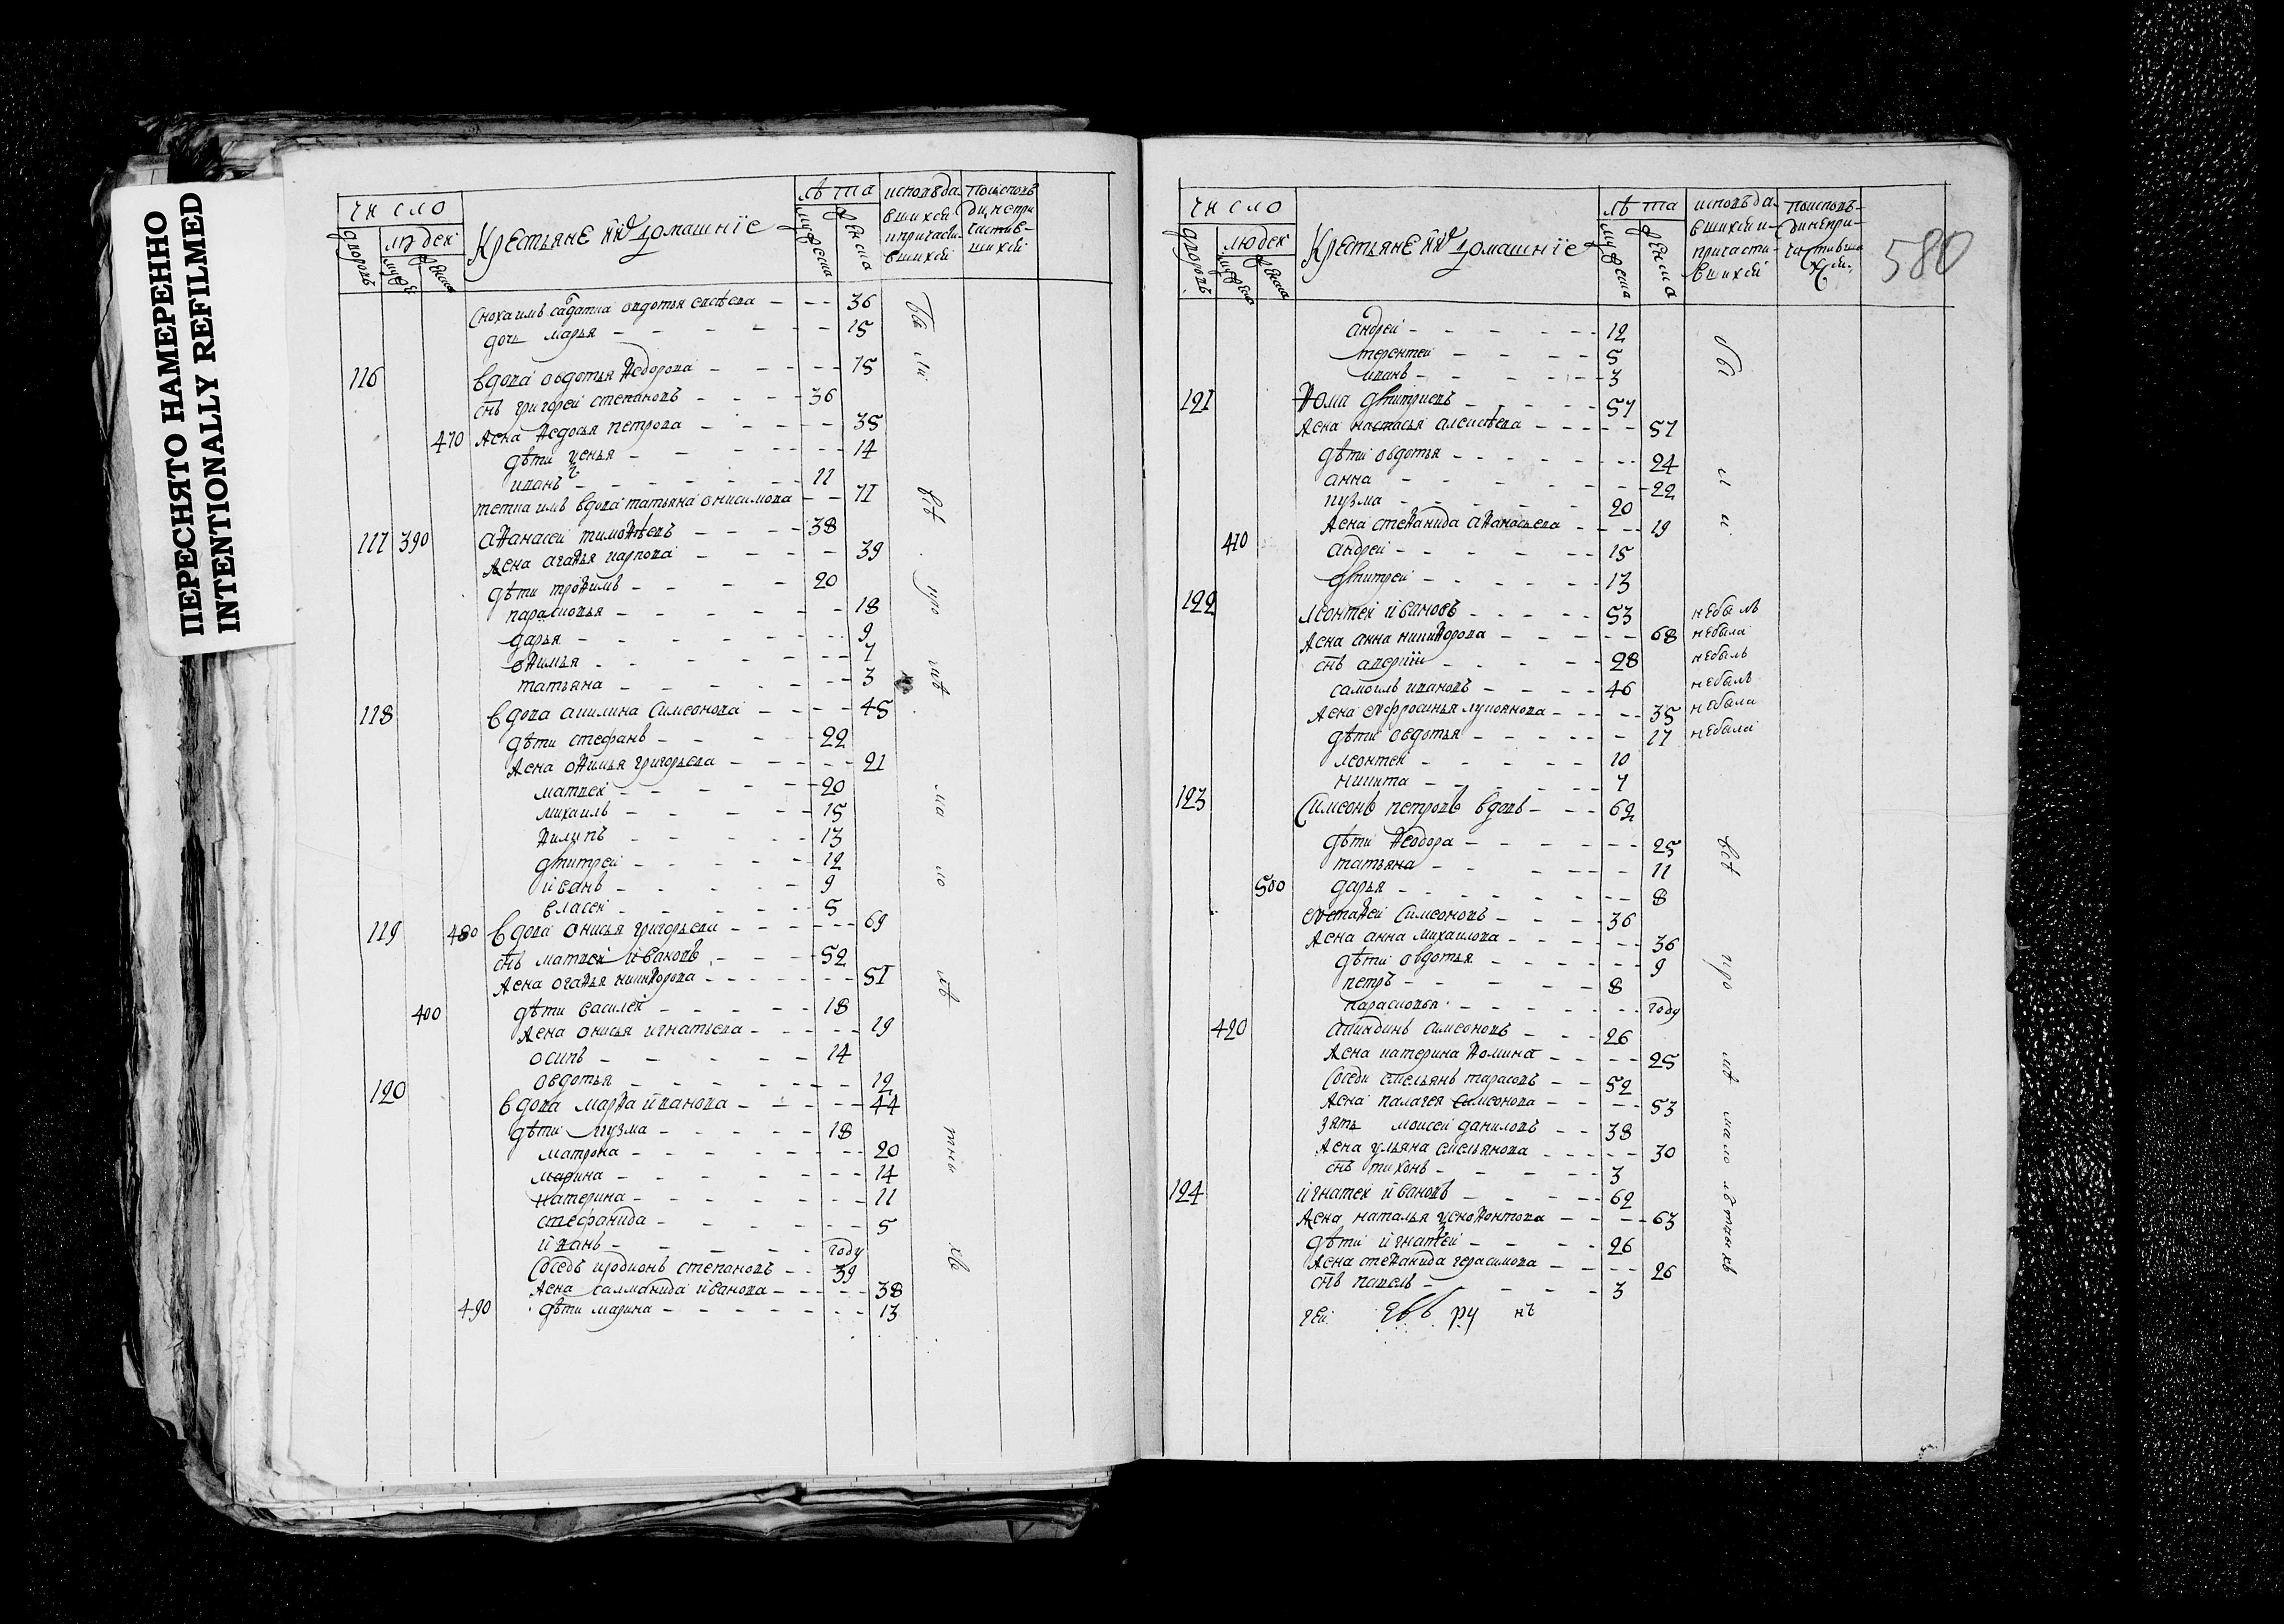 ПЕРЕСНЯТО НАМЕРЕННО
INTENTIONALLY REFILMED
число
людей
Крестьяне и их домашнїе
лѣта
сноха имъ овдотья 36
дочь марья 15
116 вдова овдотья Ѳедорова 75
снъ григорей степановъ 36
470 жена Ѳедосья петрова 35
дѣти 14
иванъ 11
тетка имъ вдова татьяна онисимова 71
117 390 аѲанасей тимоѲѣевъ 38
жена агаѲья карпова 39
дѣти троѲимъ 20
парасковья 18
дарья 9
оѲимья 7
татьяна 3
118 вдова акилина симеонова 45
дѣти стефанъ 22
жена оѲимья григорьева 21
матвей 20
михаилъ 15
Ѳилипъ 13
дмитрей 12
иванъ 9
власей 5
119 480 вдова онисья григорьева 69
снъ матвей ивановъ 52
жена огаѲья никиѲорова 51
400 дѣти василей 18
жена онисья игнатьева 19
осипъ 14
овдотья 12
120 вдова марѲа иванова 44
дѣти кузма 18
матрона 20
марина 14
катерина 11
стефанида 5
иванъ году
соседъ иродионъ степановъ 39
жена саломанида иванова 38
490 дѣти марина 13
580
число
людей
Крестьяне и их домашнїе
лѣта
андрей 12
терентей 5
иванъ 3
121 Ѳома дмитриевъ 57
жена настасья алексѣева 57
дѣти овдотья 24
анна 22
кузма 20
жена стеѲанида аѲанасьева 19
410 андрей 15
дмитрей 13
122 леонтей ивановъ 53 небылъ
жена анна никиѲорова 68 небыла
снъ 28 небылъ
самоилъ ивановъ 46 небылъ
жена еуфросинья лукоянова 35 небыла
дѣти овдотья 17 небыла
леонтей 10
никита 7
123 симеонъ петровъ вдовъ 62
дѣти Ѳеодора 25
татьяна 11
500 дарья 8
еустаѲей симеоновъ 36
жена анна михаилова 36
дѣти овдотья 9
петръ 8
парасковья году
420 акиндинъ симеоновъ 26
жена катерина Ѳомина 25
соседи емельянъ тарасовъ 52
жена палагея симеонова 53
зять моисей даниловъ 38
жена ульяна емельянова 30
снъ тихонъ 3
124 игнатей ивановъ 62
жена наталья ксноѲонтова 63
дѣти игнатей 26
жена стеѲанида герасимова 26
снъ павелъ 3